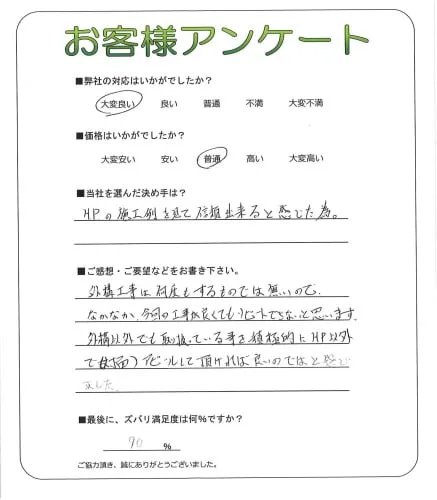 お客様アンケート
■弊社の対応はいかがでしたか？
大変良い 良い 普通 不満 大変不満
■価格はいかがでしたか？
大変安い 安い 普通 高い 大変高い
■当社を選んだ決め手は？
HPの施工例を見て信頼出来ると感じた為。
■ご感想・ご要望などをお書き下さい。
外構工事は何度もするものでは無いので
なかなか、今回の工事が良くてもリピートできないと思います
外構以外でも取扱っている事を積極的にHP以外
で アピールして頂ければ良いのではと感じ
ました。
■最後に、ズバリ満足度は何%ですか？
90 %
ご協力頂き、誠にありがとうございました。